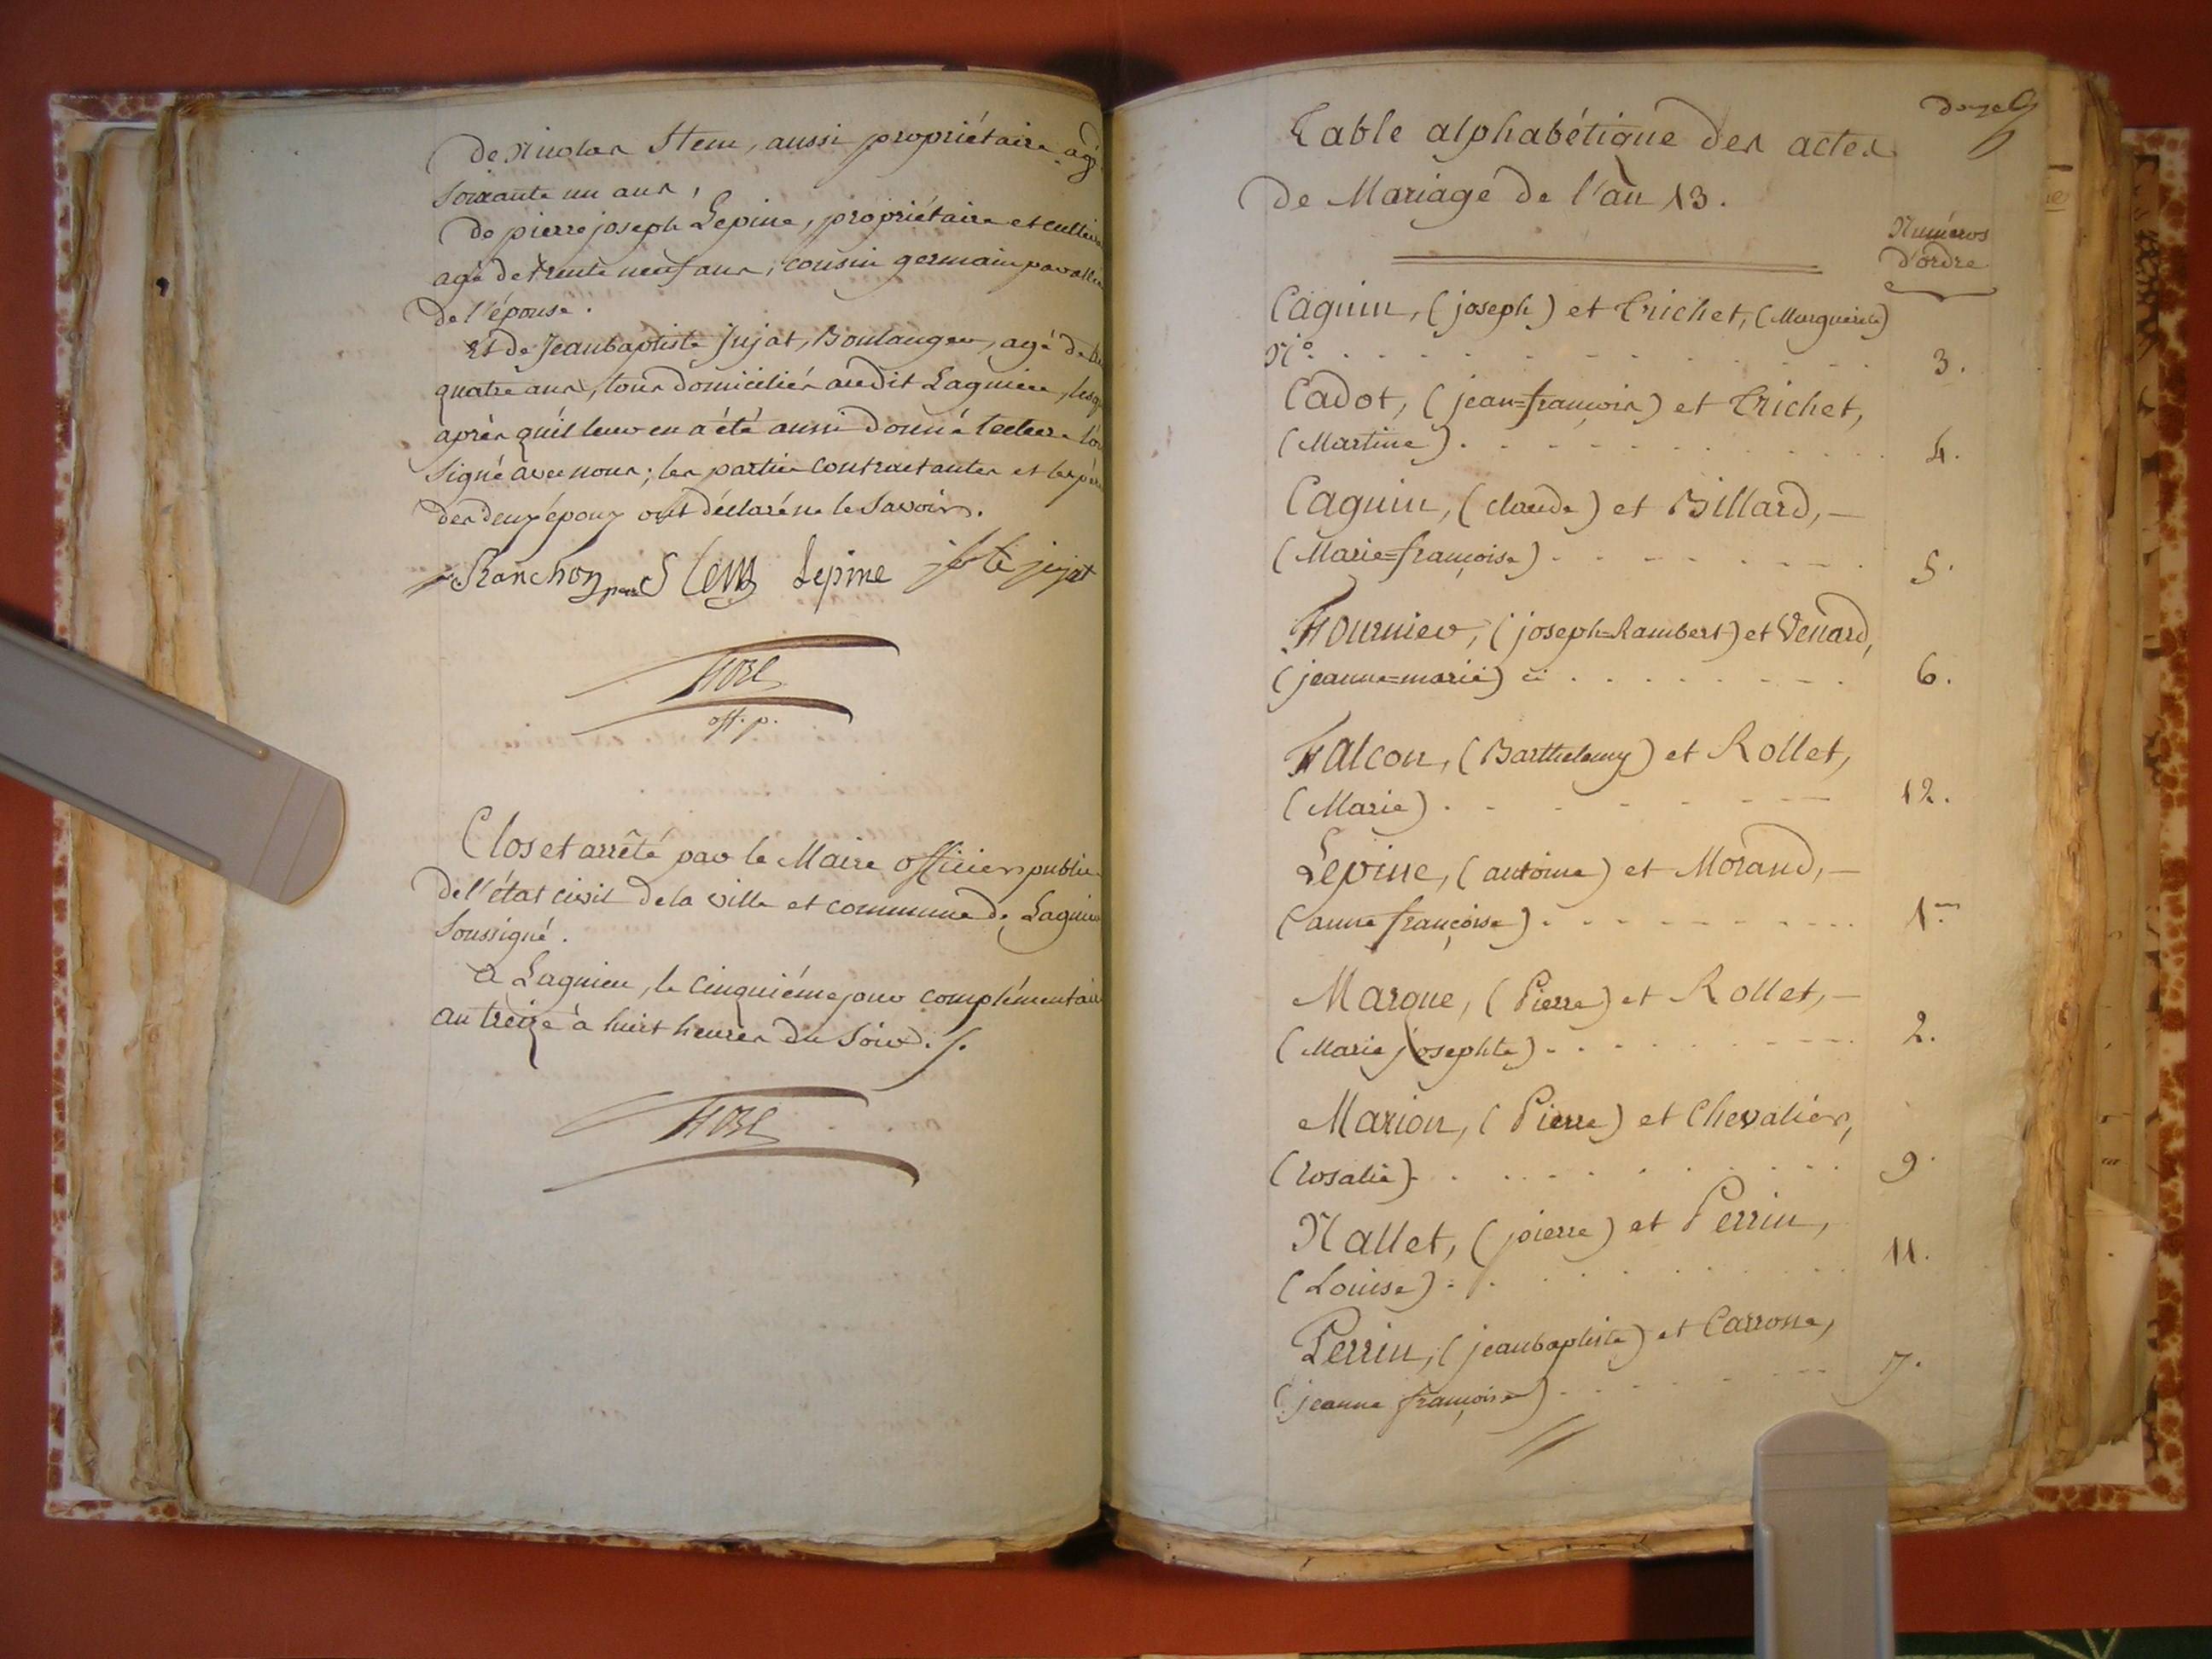 De Nicolas Stem, aussi propriétaire agé
soixante un ans,
De pierre joseph Lepine, propriétaire et
agé de trente neuf ans, cousin germain
De l'épouse.
Et de Jeanbaptiste jujat, Boulanger, agé de
quatre ans, tous domiciliés audit Lagnieu,
après qu'il leur en a été aussi donné lecture
signé avec nous; les parties contractantes et les
des deux époux ont déclaré ne le savoir.
Ranchon Stem Lepine jbte jujat
off. p.
Clos et arrêté par le Maire officier public
de l'état civil de la ville et commune de Lagnieu
Soussigné.
a Lagnieu, le cinquiéme jour complémentaire
an treize à huit heures du soir.
douze
Table alphabétique des actes
De Mariage de l'an 13.
Numéros
D'ordre
Caguin, (joseph) et Trichet, (Marguerite)
N° 3.
Cadot, (jean=françois) et Trichet,
(Martine) 4.
Caguin, (claude) et Billard, —
(Marie=françoise) 5.
Fournier, (joseph=Rambert) et Venard,
(jeanne=marie) ci 6.
Falcon, (Barthelemy) et Rollet,
(Marie) 12.
Lepine, (antoine) et Morand, —
(anne françoise) 1er
Marque, (Pierre) et Rollet, —
(Marie josephte) 2.
Marion, (Pierre) et Chevalier,
(rosalie) 9.
Nallet, (pierre) et Perrin,
(Louise) 11.
Perrin, (jeanbaptiste) et Carrone,
(jeanne françoise) 7.